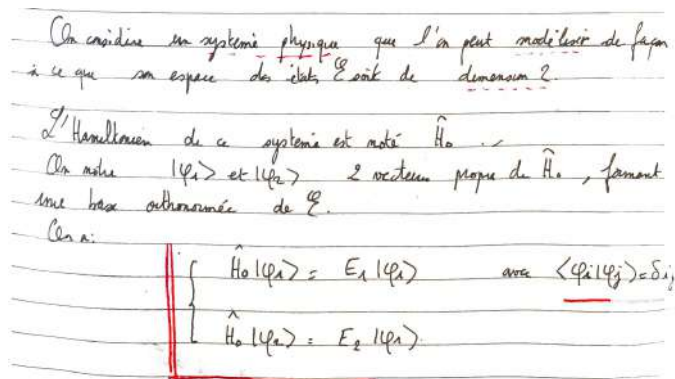 On considère un système physique que l'on peut modéliser de façon
à ce que son espace des états ℰ soit de dimension 2.
L'Hamiltonien de ce système est noté Ĥ₀.
On note |φ₁> et |φ₂> 2 vecteurs propre de Ĥ₀, formant
une base orthonormée de ℰ.
On a:
Ĥ₀ |φ₁> = E₁ |φ₁> avec <φi|φj> = δij
Ĥ₀ |φ₂> = E₂ |φ₁>.